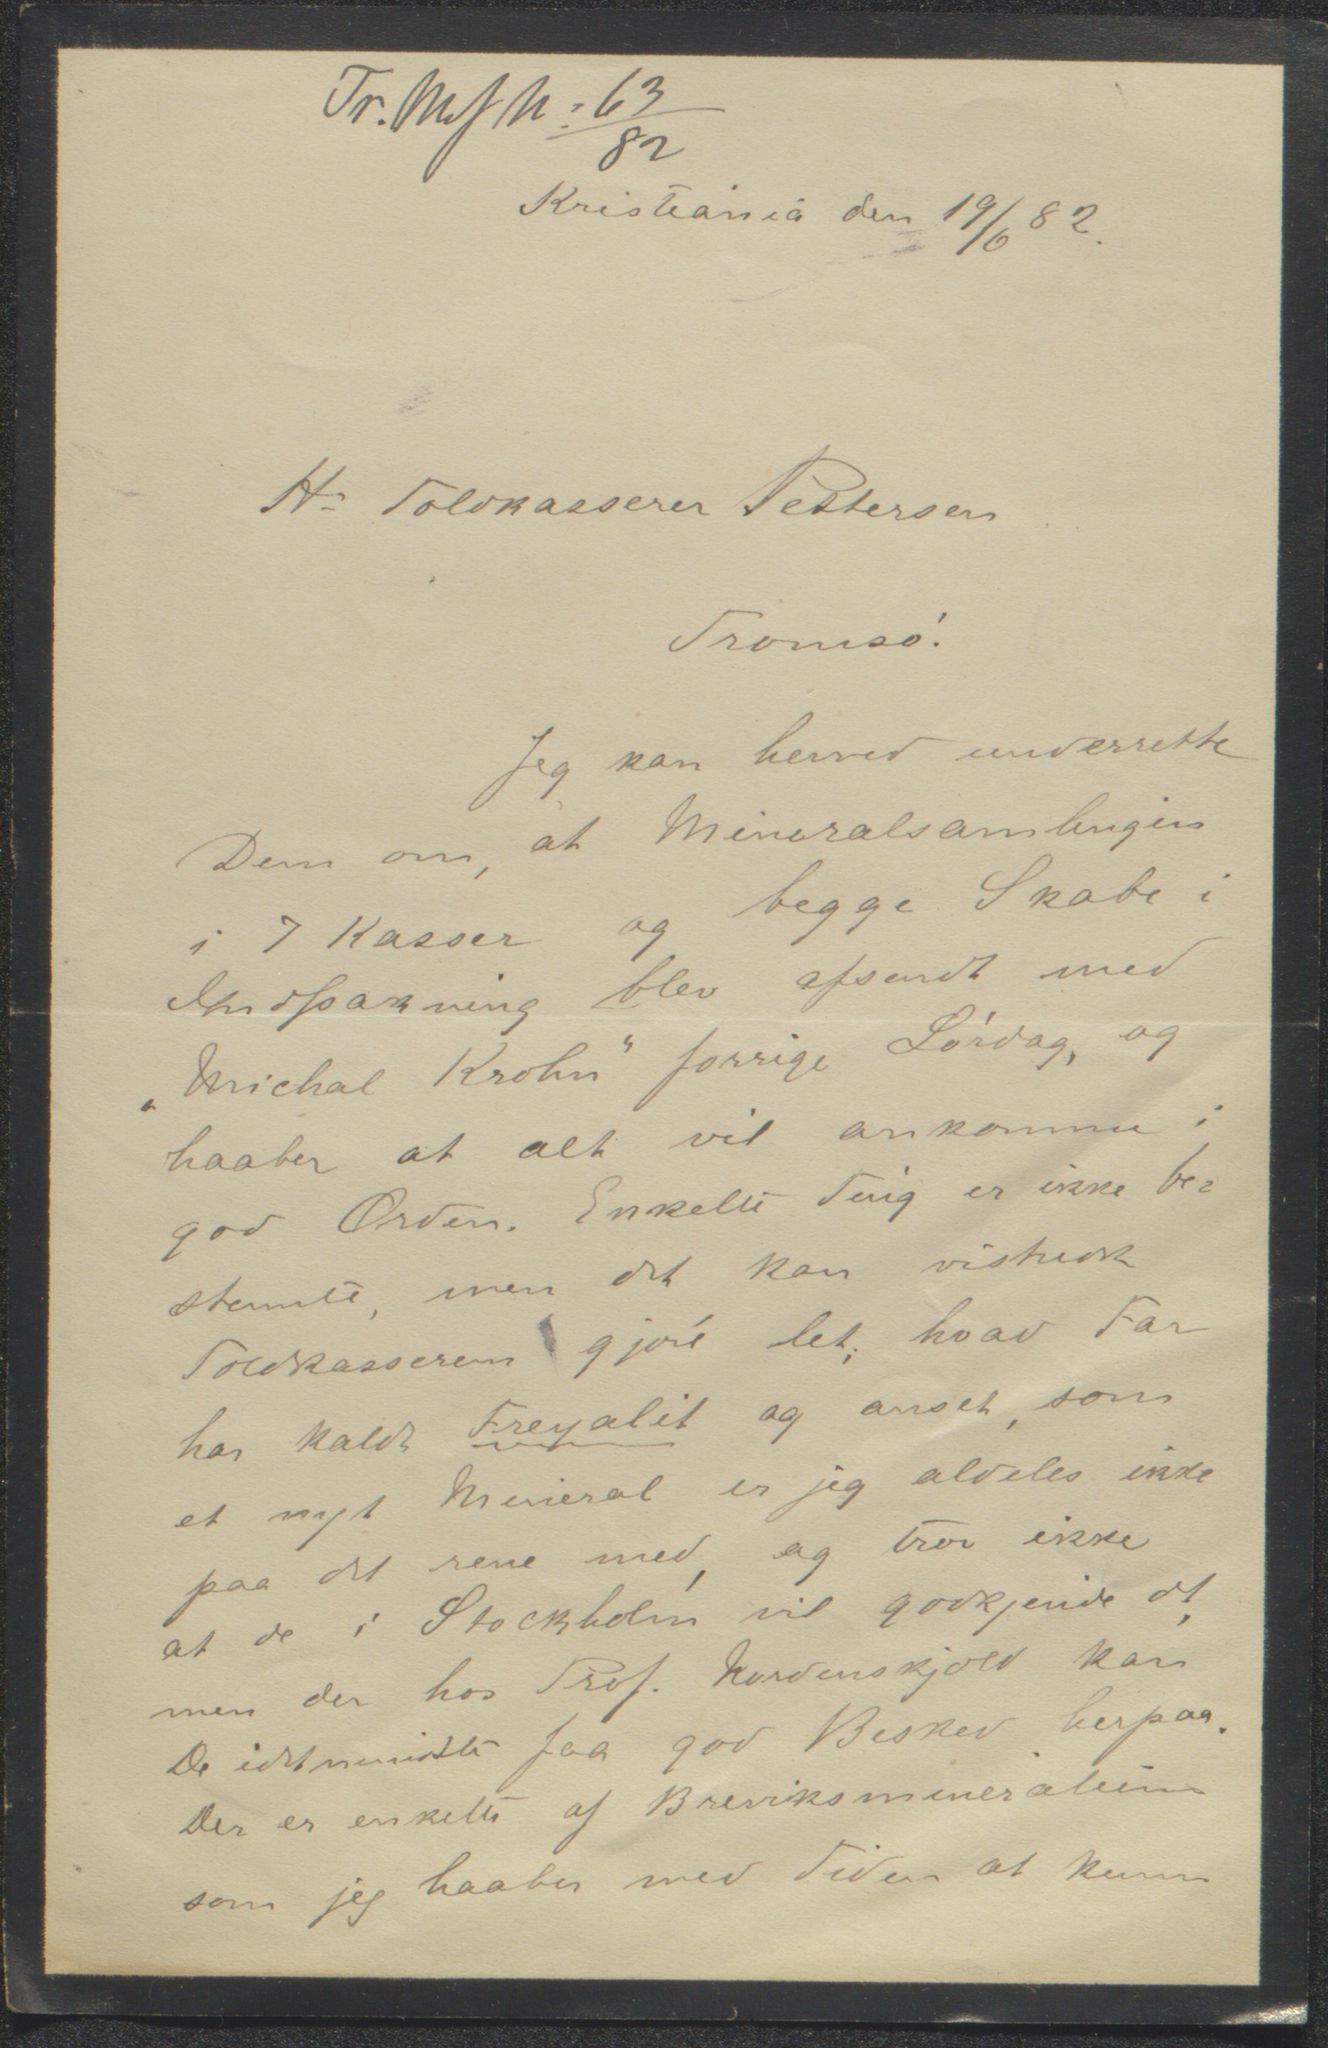 Tr. Ms J N: 63/82
Kristiania den 19/6 82.
Hr Toldkasserer Pettersen
Tromsø.
Jeg kan herved underrette
Dem om, at Mineralsamlingen
i 7 Kasser og begge Skabe i
Indpakning blev afsendt med
„Michal Krohn" forrige Lørdag, og
haaber at alt vil ankomme i
god Orden. Enkelte Ting er ikke be=
stemte, men det kan vistnok
Toldkassereren gjøre let; hvad Far
har kaldt Freyalit og anset, som
et nyt Mineral er jeg aldeles ikke
paa det rene med, og tror ikke
at de i Stockholm vil godkjende det,
men der hos Prof. Nordenskjold kan
De idetmindste faa god Besked herpaa.
Der er enkelte af Breviksmineralierne
som jeg haaber med Tiden at kunne